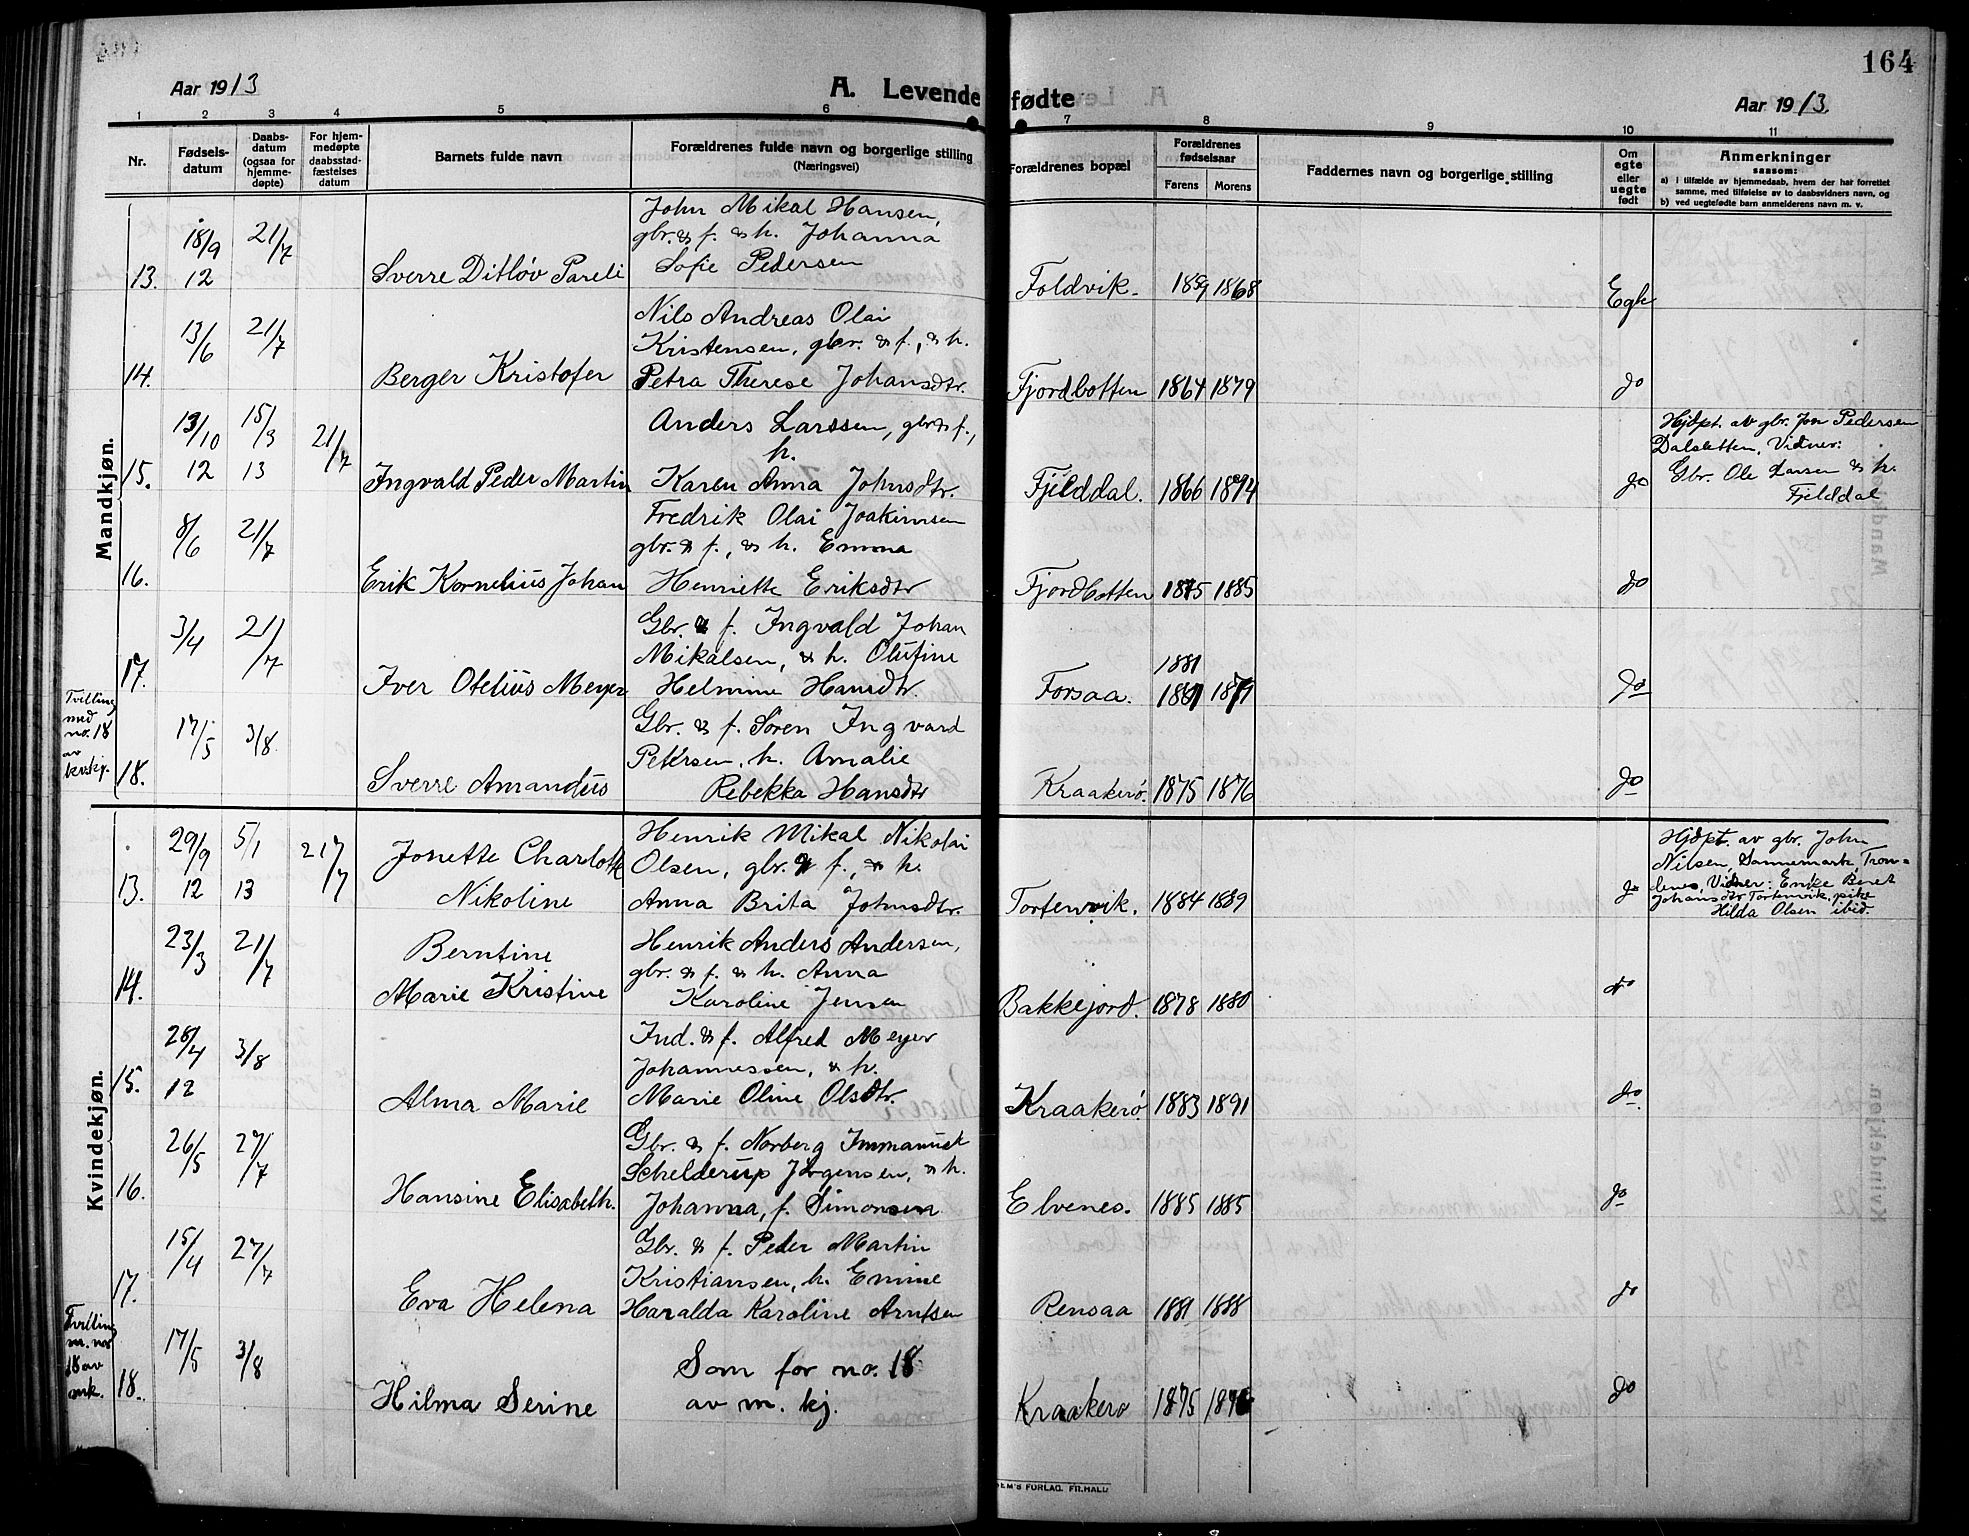 164
Aar 1913
A. Levende fødte
Aar 1913.
1 2 3 4 5 6 7 8 9 10 11
Nr.
Fødsels-
datum
Daabs-
datum
(ogsaa for
hjemme-
døpte)
For hjem-
medøpte
daabsstad-
fæstelses
datum
Barnets fulde navn
Forældrenes fulde navn og borgerlige stilling
(Næringsvei)
Forældrenes bopæl
Forældrenes
fødselsaar
Farens Morens
Faddernes navn og borgerlige stilling
Om
egte
eller
uegte
født
Anmerkninger
saasom:
a) i tilfælde av hjemmedaab, hvem der har forrettet
samme, med tilføielse av to daabsvidners navn, og
b) ved uegtefødte barn anmelderens navn m. v.
Mandkjøn.
John Mikal Hansen,
18/9 21/7 gbr. & f. & h. Johanna
13. 12 Sverre Ditløv Pareli Sofie Pedersen Foldvik. 1859 1868 Egte
Nils Andreas Olai
13/6 21/7 Kristensen, gbr. & f., & h.
14. Berger Kristofer Petra Therese Johansdtr. Fjordbotten 1864 1879 do
13/10 15/3 21/7 Anders Larssen, gbr & f.,
h.
15. 12 13 Ingvald Peder Martin Karen Anna Johnsdtr. Fjelddal. 1866 1874 do
Hjdpt. av gbr. Jon Pedersen
Dalsletten, Vidner:
Gbr. Ole Larsen & h.
Fjelddal
Fredrik Olai Joakimsen
8/6 21/7 gbr. & f., & h. Emma
16. Erik Kornelius Johan Henriette Eriksdtr Fjordbotten 1875 1885 do
Gbr. & f. Ingvald Johan
3/4 21/7 Mikalsen, & h. Olufine 1881
17. Iver Otelius Meyer Helmine Hansdtr. Forsaa. 1881 1879 do
Tvilling
med
no. 18
av
kvkj.
Gbr. & f. Søren Ingvard
17/5 3/8 Petersen, h. Amalie
18. Sverre Amandus Rebekka Hansdtr Kraakerø. 1875 1876 do
Kvindekjøn.
29/9 5/1 21/7 Jonette Charlotte Henrik Mikal Nikolai
Olsen, gbr. & f., & h.
13. 12 13 Nikoline Anna Brita Johnsdtr. Tortenvik. 1884 1889 do
Hjdpt. av gbr. John
Nilsen, Sannemark, Tron-
denes, Vidner: Enke Beret
Johansdtr Tortenvik, pike
Hilda Olsen ibid.
23/3 21/7 Berntine Henrik Anders Andersen,
gbr. & f. & h. Anna
14. Marie Kristine Karoline Jensen Bakkejord. 1878 1880 do
28/4 3/8 Ind. & f. Alfred Meyer
Johannessen, & h.
15. 12 Alma Marie Marie Oline Olsdtr. Kraakerø 1883 1891 do
26/5 27/7 Gbr. & f. Norberg Immanuel
Schelderup Jørgensen, & h.
16. Hansine Elisabeth. Johanna, f. Simonsen Elvenes. 1885 1885 do
15/4 27/7 Gbr. & f. Peder Martin
Kristiansen, h. Emine
17. Eva Helena Haralda Karoline Arntsen Rensaa 1881 1888 do
Tvilling
m. no
18 av
mk.
17/5 3/8 Som for no. 18
18. Hilma Serine av m. kj. Kraakerø 1875 1876 do
FORLAG, FR.HALD